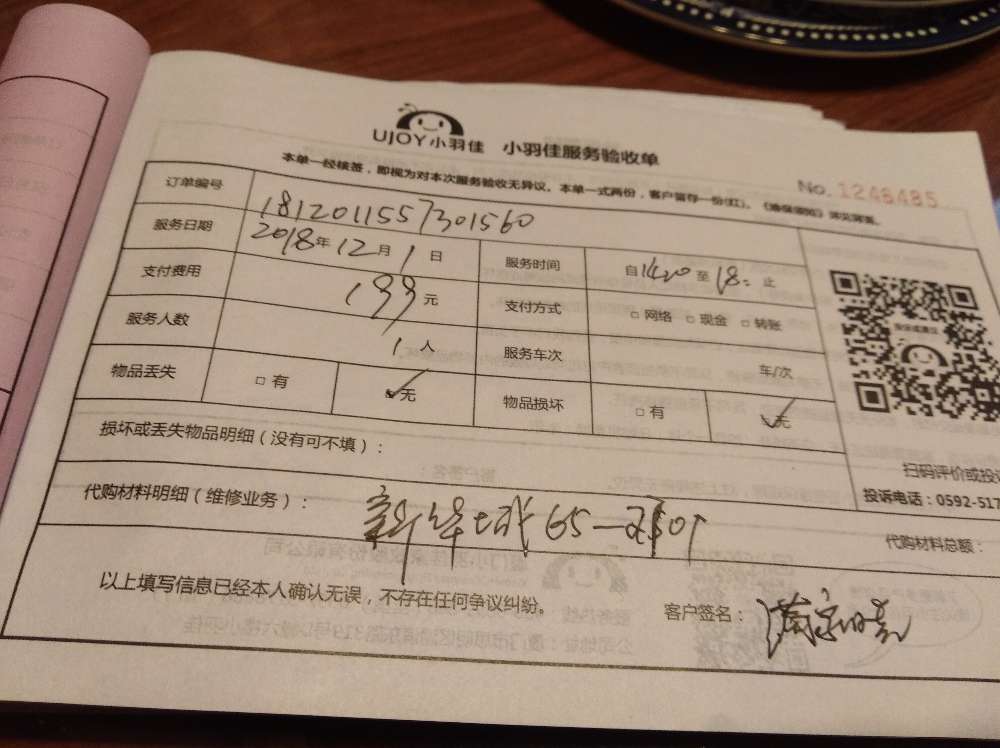 UJOY小羽佳 小羽佳服务验收单
No. 1246485
本单一经核签，即视为对本次服务验收无异议。本单一式两份，客户留存一份(红)。
订单编号 1812011557301560
服务日期 2018年12月1日 服务时间 自1420至18:止
支付费用 199元 支付方式 □ 网络 □ 现金 □ 转账
服务人数 1人 服务车次 车/次
物品丢失 □ 有 ✓无 物品损坏 □ 有 ✓无
损坏或丢失物品明细（没有可不填）：
扫码评价或投
代购材料明细（维修业务）： 65
投诉电话：0592-517
代购材料总额：
以上填写信息已经本人确认无误，不存在任何争议纠纷。 客户签名：